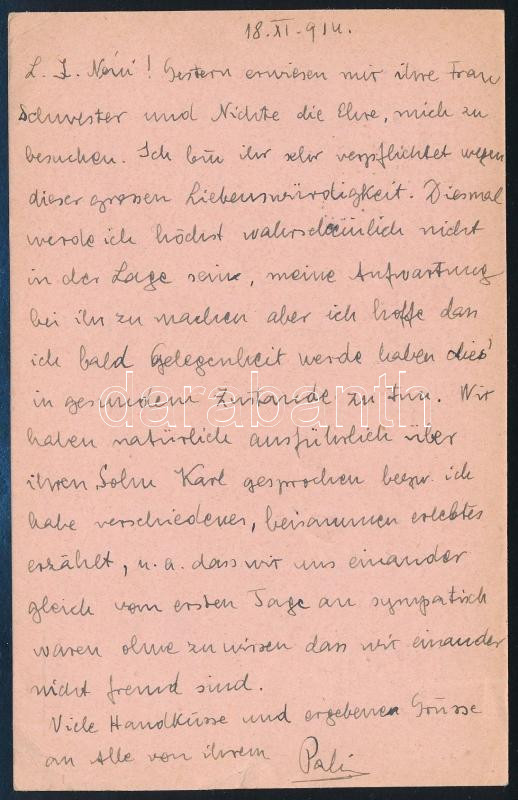 18.XI.914.
L. I. Néni! Gestern erwiesen mir ihre Frau
Schwester und Nichte die Ehre, mich zu
besuchen. Ich bin ihr sehr verpflichtet wegen
dieser grossen Liebenswürdigkeit. Diesmal
werde ich höchst wahrscheinlich nicht
in der Lage sein, meine Aufwartung
bei ihr zu machen aber ich hoffe dass
ich bald Gelegenheit werde haben dies
in gesundem Zustande zu tun. Wir
darabanth
haben natürlich ausführlich über
ihren Sohn Karl gesprochen bezw. ich
habe verschiedenes, beisammen erlebtes
erzählt, u. a. dass wir uns einander
gleich vom ersten Tage an sympatisch
waren ohne zu wissen dass wir einander
nicht fremd sind.
Viele Handküsse und ergebenen Grüsse
an Alle von ihrem Pali